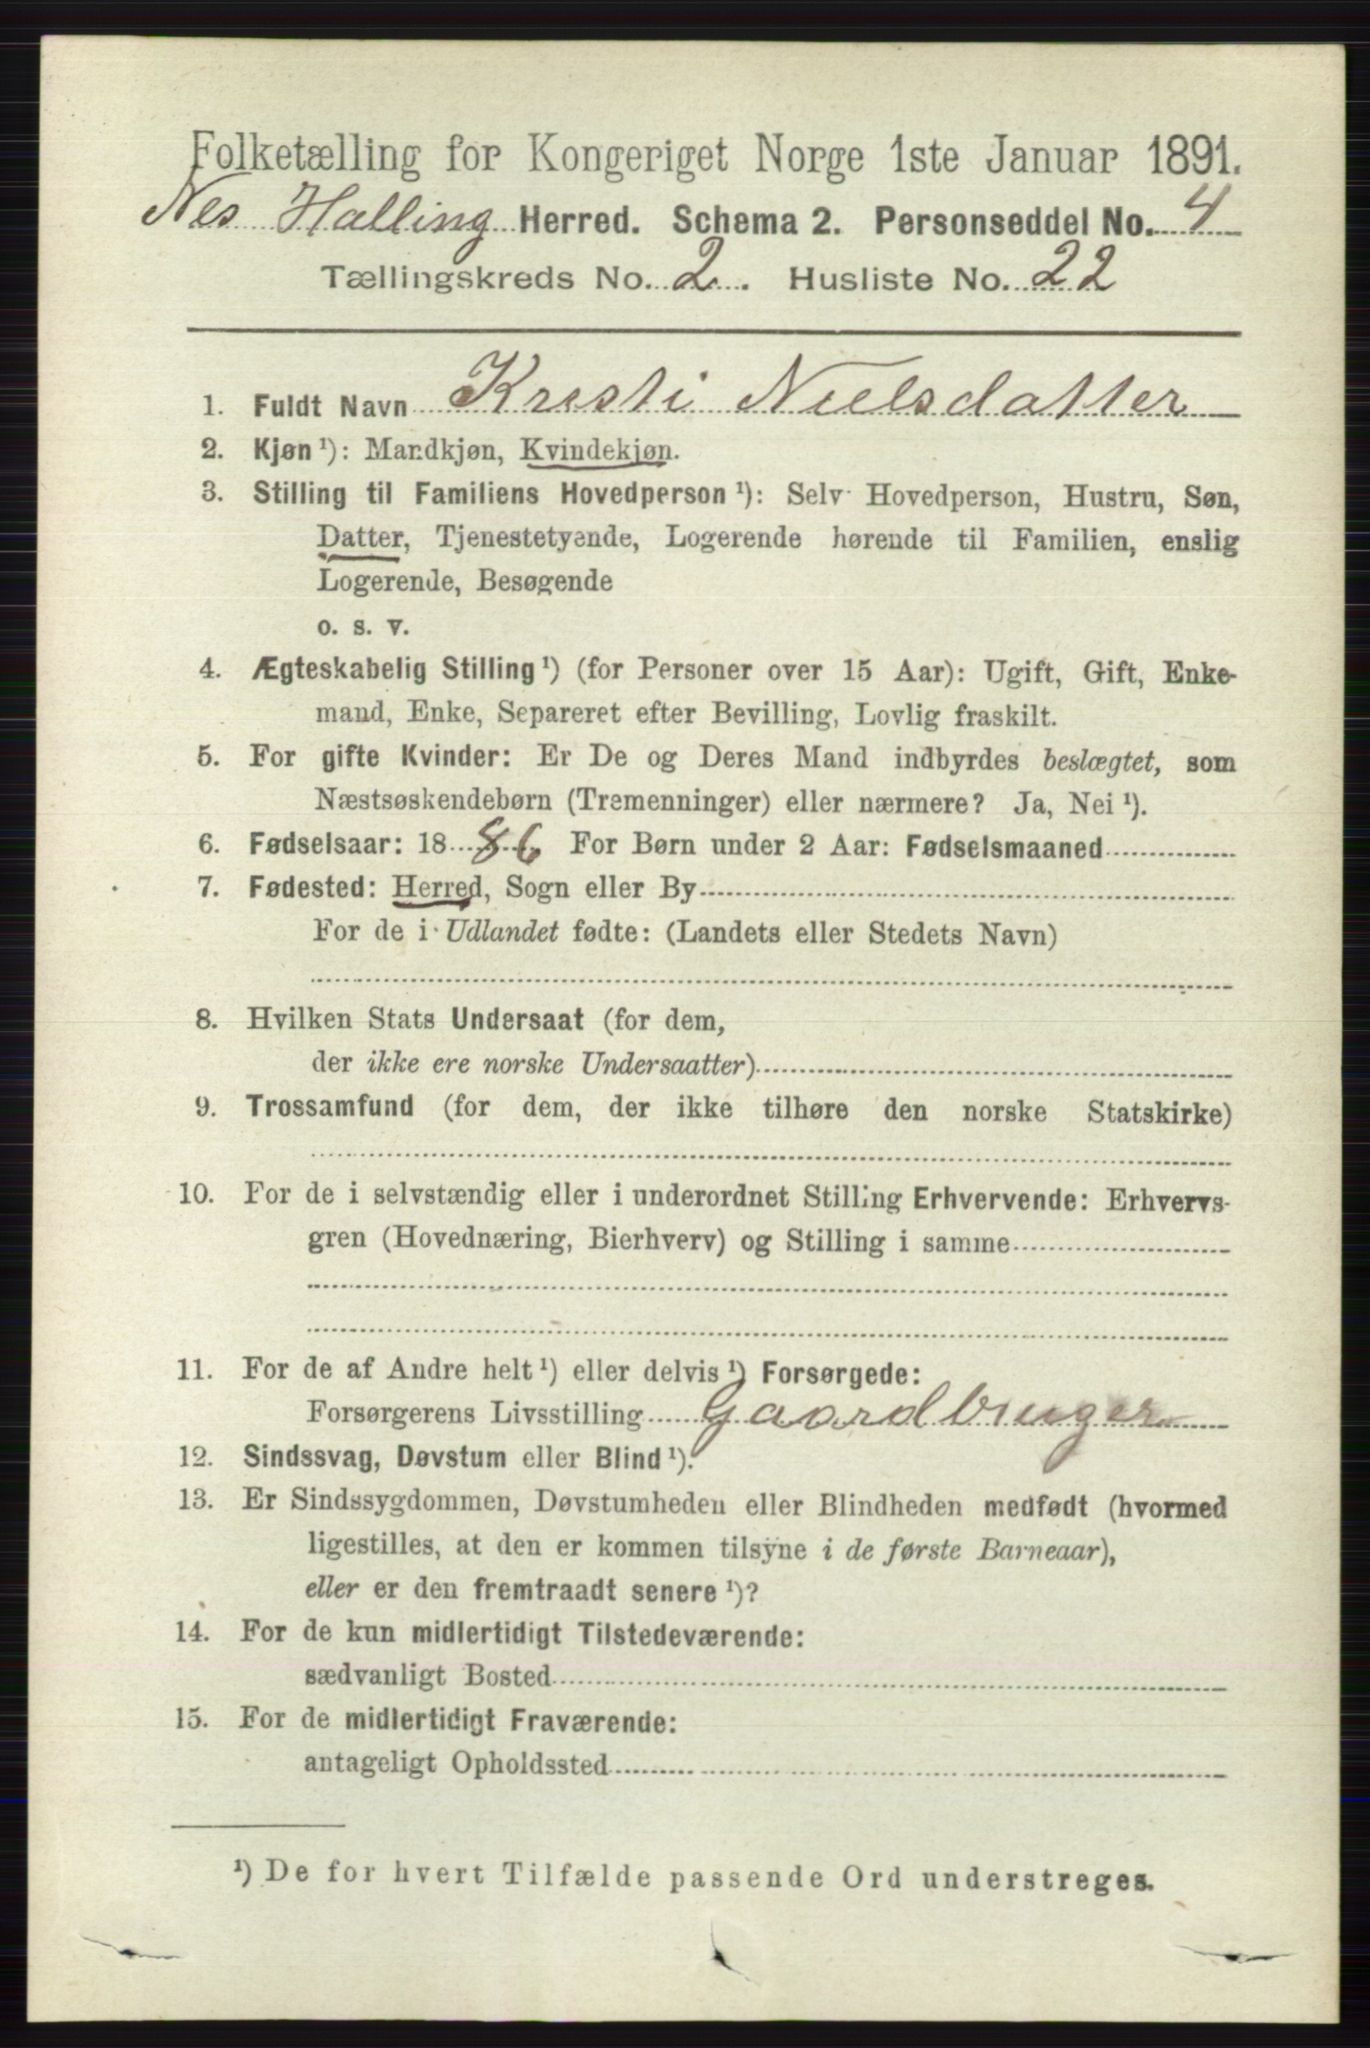 Folketælling for Kongeriget Norge 1ste Januar 1891.
Nes Halling Herred. Schema 2. Personseddel No. 4
Tællingskreds No. 2. Husliste No. 22
1. Fuldt Navn Kristi Nielsdatter
2. Kjøn ¹): Mandkjøn, Kvindekjøn.
3. Stilling til Familiens Hovedperson ¹): Selv Hovedperson, Hustru, Søn,
Datter, Tjenestetyende, Logerende hørende til Familien, enslig
Logerende, Besøgende
o. s. v.
4. Ægteskabelig Stilling ¹) (for Personer over 15 Aar): Ugift, Gift, Enke-
mand, Enke, Separeret efter Bevilling, Lovlig fraskilt.
5. For gifte Kvinder: Er De og Deres Mand indbyrdes beslægtet, som
Næstsøskendebørn (Tremenninger) eller nærmere? Ja, Nei ¹).
6. Fødselsaar: 1886 For Børn under 2 Aar: Fødselsmaaned
7. Fødested: Herred, Sogn eller By
For de i Udlandet fødte: (Landets eller Stedets Navn)
8. Hvilken Stats Undersaat (for dem,
der ikke ere norske Undersaatter)
9. Trossamfund (for dem, der ikke tilhøre den norske Statskirke)
10. For de i selvstændig eller i underordnet Stilling Erhvervende: Erhvervs-
gren (Hovednæring, Bierhverv) og Stilling i samme
11. For de af Andre helt ¹) eller delvis ¹) Forsørgede:
Forsørgerens Livsstilling Gaardbruger
12. Sindssvag, Døvstum eller Blind ¹).
13. Er Sindssygdommen, Døvstumheden eller Blindheden medfødt (hvormed
ligestilles, at den er kommen tilsyne i de første Barneaar),
eller er den fremtraadt senere ¹)?
14. For de kun midlertidigt Tilstedeværende:
sædvanligt Bosted
15. For de midlertidigt Fraværende:
antageligt Opholdssted
¹) De for hvert Tilfælde passende Ord understreges.